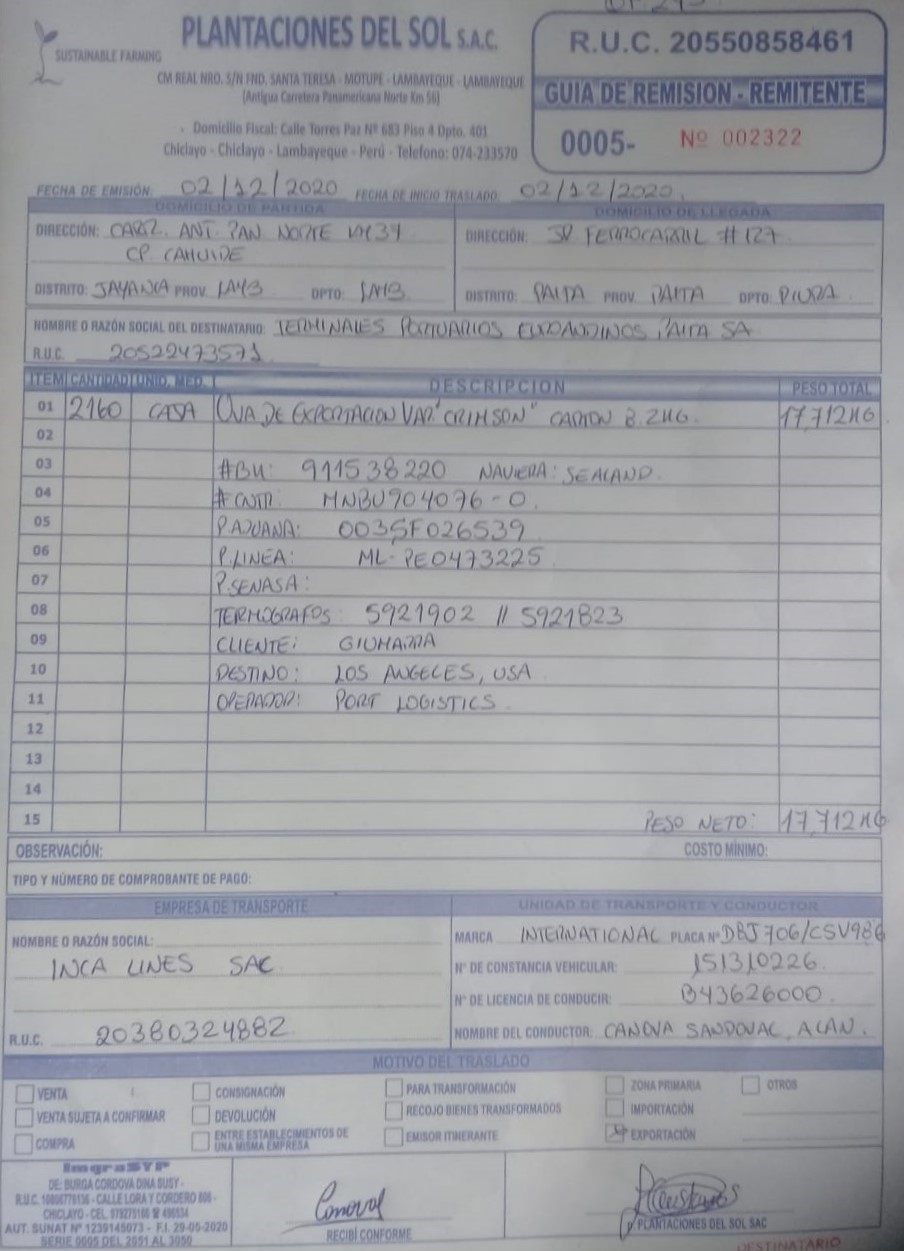 SUSTAINABLE FARMING
PLANTACIONES DEL SOL S.A.C.
CM REAL NRO. S/N FND. SANTA TERESA - MOTUPE - LAMBAYEQUE - LAMBAYEQUE
(Antigua Carretera Panamericana Norte Km 56)
Domicilio Fiscal: Calle Torres Paz Nº 683 Piso 4 Dpto. 401
Chiclayo - Chiclayo - Lambayeque - Perú - Telefono: 074-233570
R.U.C. 20550858461
GUIA DE REMISION - REMITENTE
0005- Nº 002322
FECHA DE EMISIÓN: 02/12/2020 FECHA DE INICIO TRASLADO: 02/12/2020.
DOMICILIO DE PARTIDA
DIRECCIÓN: CARR. ANT. PAN. NORTE KM 34
CP. CAHUIDE
DISTRITO: JAYANCA PROV. LAMB DPTO: LAMB.
DOMICILIO DE LLEGADA
DIRECCIÓN: JR. FERROCARRIL #127
DISTRITO: PAITA PROV PAITA DPTO: PIURA
NOMBRE O RAZÓN SOCIAL DEL DESTINATARIO: TERMINALES PORTUARIOS EUROANDINOS PAITA SA
R.U.C. 20522473571
ITEM CANTIDAD UNID. MED. DESCRIPCION PESO TOTAL
01 2160 CAJA UVA DE EXPORTACION VAR "CRIMSON" CARTON 8.2KG. 17,712KG
02
03 #BK: 911538220 NAVIERA: SEALAND.
04 #CNTR: MNBU904076-0.
05 P. ADUANA: 003SF026539
06 P. LINEA: ML-PE0473225
07 P. SENASA:
08 TERMOGRAFOS: 5921902 // 5921823
09 CLIENTE: GIUMARRA
10 DESTINO: LOS ANGELES, USA
11 OPERADOR: PORT LOGISTICS.
12
13
14
15 PESO NETO: 17,712KG
OBSERVACIÓN: COSTO MÍNIMO:
TIPO Y NÚMERO DE COMPROBANTE DE PAGO:
EMPRESA DE TRANSPORTE
NOMBRE O RAZÓN SOCIAL:
INCA LINES SAC
R.U.C. 20380324882
UNIDAD DE TRANSPORTE Y CONDUCTOR
MARCA INTERNATIONAL PLACA Nº D8J706/CSV986
Nº DE CONSTANCIA VEHICULAR: 151310226
Nº DE LICENCIA DE CONDUCIR: B43626000
NOMBRE DEL CONDUCTOR: CANOVA SANDOVAL, ALAN.
MOTIVO DEL TRASLADO
VENTA
VENTA SUJETA A CONFIRMAR
COMPRA
CONSIGNACIÓN
DEVOLUCIÓN
ENTRE ESTABLECIMIENTOS DE
UNA MISMA EMPRESA
PARA TRANSFORMACIÓN
RECOJO BIENES TRANSFORMADOS
EMISOR ITINERANTE
ZONA PRIMARIA
IMPORTACIÓN
X EXPORTACIÓN
OTROS
ImgraSYP
DE: BURGA CORDOVA DINA SUSY -
CALLE LORA Y CORDERO
CHICLAYO - CEL.
AUT. SUNAT Nº 1239145073 - F.I. 29-05-2020
SERIE 0005 DEL 2051 AL 3050
Canoval
RECIBÍ CONFORME
p/ PLANTACIONES DEL SOL SAC
DESTINATARIO